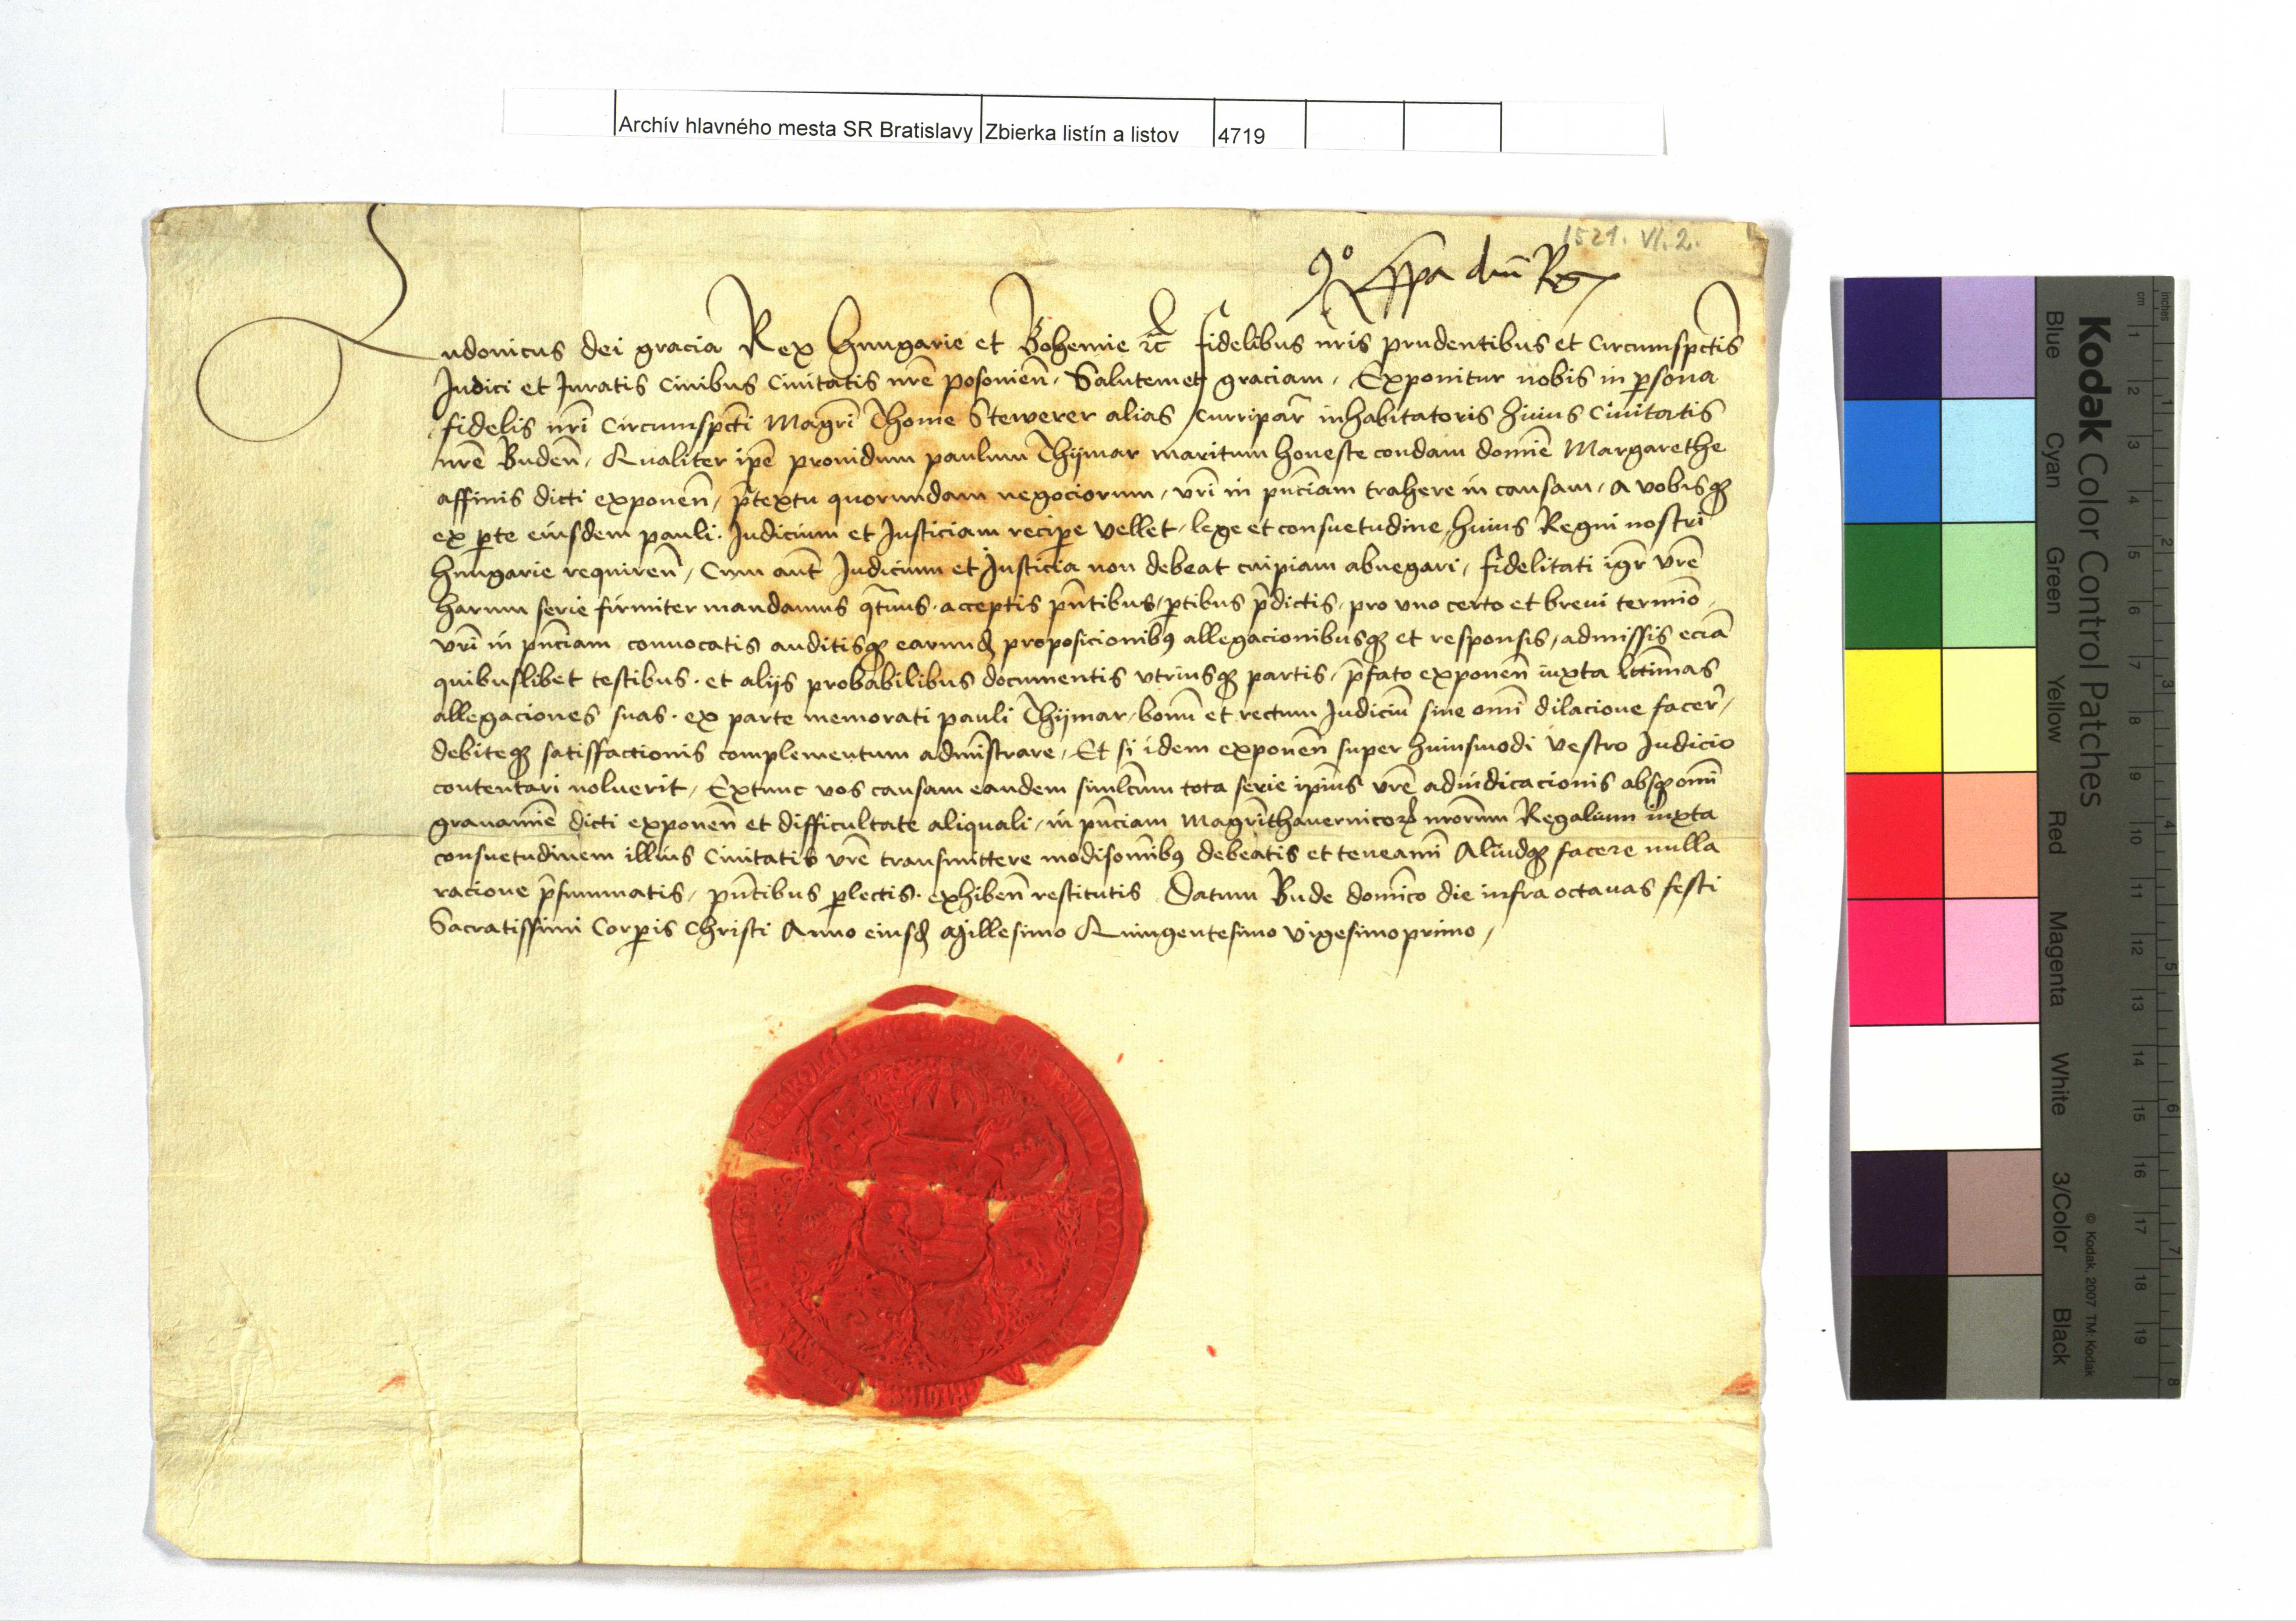 Archív hlavného mesta SR Bratislavy Zbierka listín a listov 4719
1521. VI. 2.
Ludouicus dei gracia Rex Hungarie et Bohemie etc̄ fidelibus nr̄is prudentibus et Circumspectis
Judici et Juratis Ciuibus Ciuitatis nr̄e posonien̄. Salutem et graciam, Exponitur nobis in p̱sona
fidelis nr̄i Circumspc̄ti Magr̄i Thome Stewerer alias Curripar̄ inhabitatoris huius Ciuitatis
nr̄e Buden̄, Qualiter ip̄e prouidum paulum Thijmar maritum honeste condam domīe Margarethe
affinis dicti exponen̄, p̄textu quorundam negociorum, vr̄i in pn̄ciam trahere in causam, a vobisq̨
ex p̱te eiusdem pauli. Judicium et Justiciam recip̱e vellet, lege et consuetudine huius Regni nostri
hungarie requiren̄, Cum aut̄ Judicium et Justicia non debeat cuipiam abnegari, fidelitati igr̄ vr̄e
harum serie firmiter mandamus qt̄nus. acceptis pn̄tibus, p̱tibus p̄dictis, pro vno certo et breui termīo,
vr̄i in pn̄ciam conuocatis auditisq̨ earund̨ proposicionibꝰ allegacionibusq̨ et responsis, admissis eciā
quibuslibet testibus. et alijs probabilibus documentis vtriusq̨ partis, p̄fato exponen̄ iuxta lt̄timas
allegaciones suas. ex parte memorati pauli Thijmar, bonū et rectum Judiciū sine om̄i dilacione facer̄,
debiteq̨ satisfactionis complementum admīstrare, Et si idem exponen̄ super huiusmodi vestro Judicio
contentari noluerit, Extunc vos causam eandem simulcum tota serie ip̄ius vr̄e adiudicacionis absq̨ om̄i
grauamīe dicti exponen̄ et difficultate aliquali, in pn̄ciam Magr̄i thauernicoꝝ nr̄orum Regalium iuxta
consuetudinem illius Ciuitatis vr̄e transmittere modisom̄ibꝰ debeatis et teneamī Aliudq̨ facere nulla
racione p̄summatis, pn̄tibus p̱lectis. exhiben̄ restitutis Datum Bude domīco die infra octauas festi
Sacratissimi Corp̱is Christi Anno eiusd̨ Millesimo Quingentesimo vigesimoprimo,
Kodak Color Control Patches
Blue Cyan Green Yellow Red Magenta White 3/Color Black
© Kodak, 2007 TM: Kodak
inches 1 2 3 4 5 6 7 8
cm 1 2 3 4 5 6 7 8 9 10 11 12 13 14 15 16 17 18 19